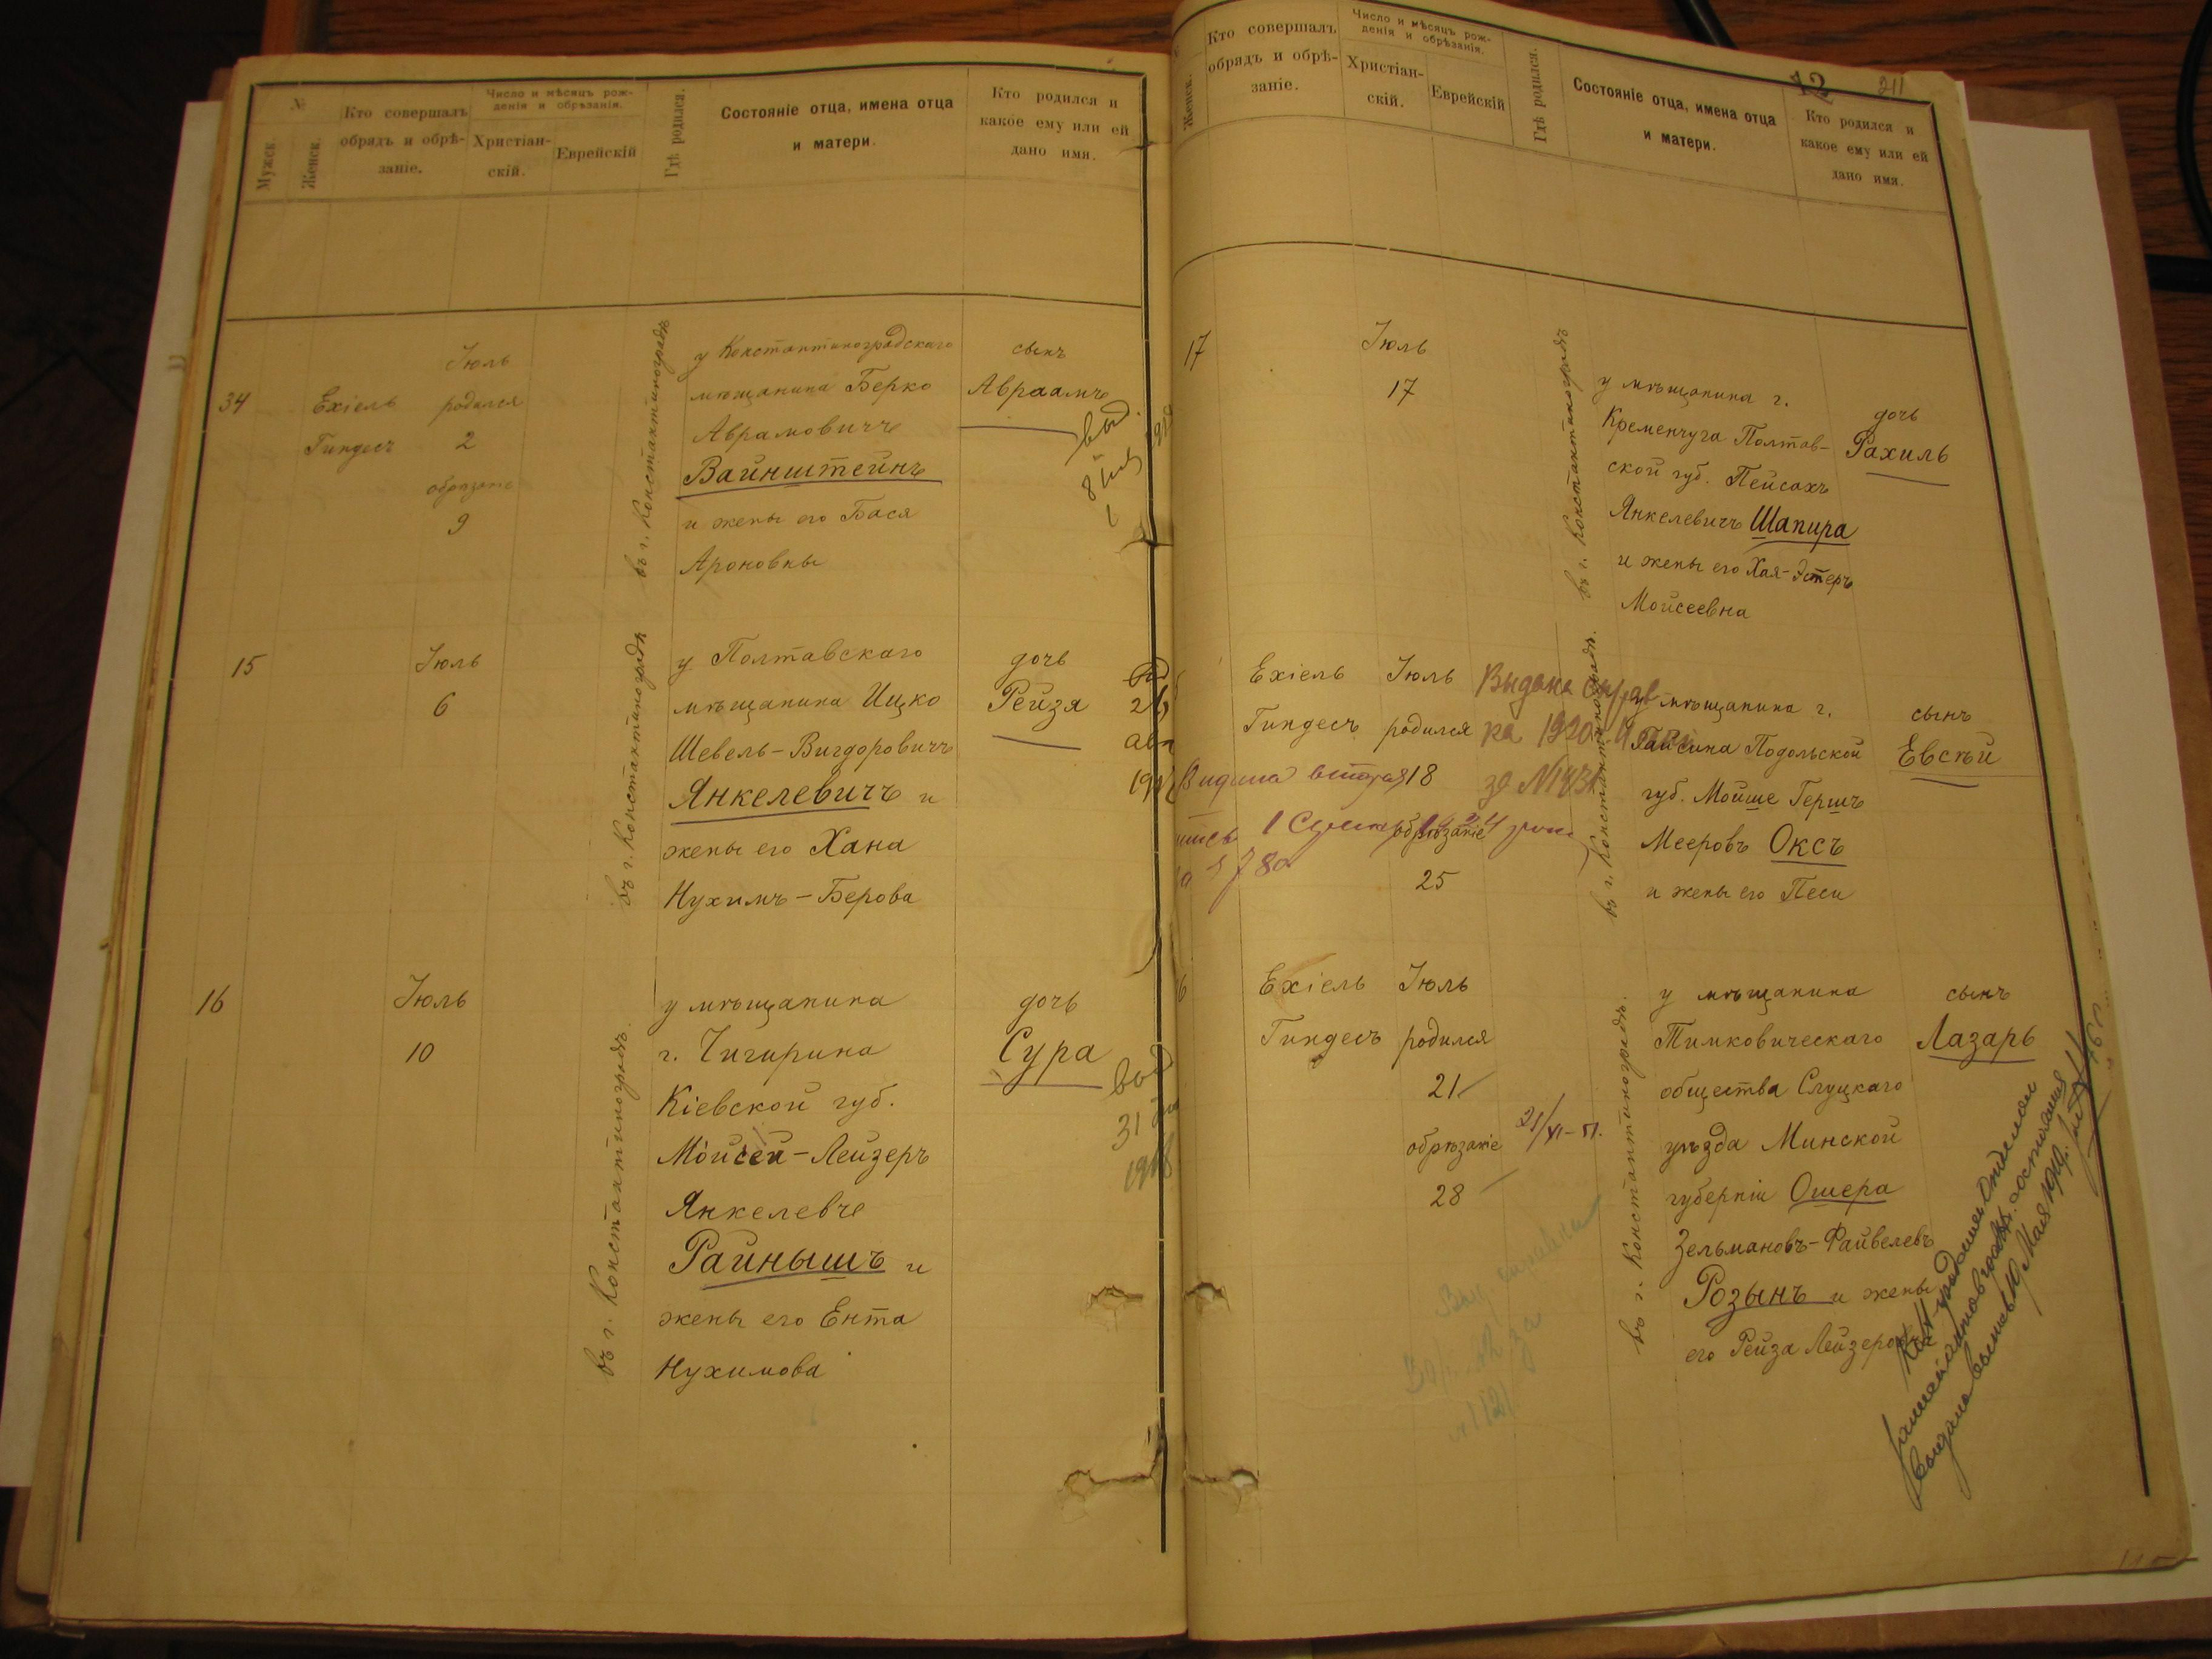 №
Мужск.
Женск.
Кто совершалъ
обрядъ и обрѣ-
заніе.
Число и мѣсяцъ рож-
денія и обрѣзанія.
Христіан-
скій.
Еврейскій
Гдѣ родился.
Состояніе отца, имена отца
и матери.
Кто родился и
какое ему или ей
дано имя.
34
Ехіель
Гиндесъ
Іюль
родился
2
обрѣзаніе
9
въ г. Константиноградѣ
у Константиноградскаго
мѣщанина Берко
Аврамовичъ
Вайнштейнъ
и жены его Бася
Ароновны
сынъ
Авраамъ
15
Іюль
6
въ г. Константиноградѣ
у Полтавскаго
мѣщанина Ицко
Шевель-Вигдоровичъ
Янкелевичъ и
жены его Хана
Нухимъ-Берова
дочь
Рейзя
16
Іюль
10
въ г. Константиноградѣ.
у мѣщанина
г. Чигирина
Кіевской губ.
Мойсей-Лейзеръ
Янкелевъ
Райнышъ и
жены его Ента
Нухимова
дочь
Сура
31
1918
12
211
Женск.
Кто совершалъ
обрядъ и обрѣ-
заніе.
Число и мѣсяцъ рож-
денія и обрѣзанія.
Христіан-
скій.
Еврейскій
Гдѣ родился.
Состояніе отца, имена отца
и матери.
Кто родился и
какое ему или ей
дано имя.
17
Іюль
17
въ г. Константиноградѣ
у мѣщанина г.
Кременчуга Полтав-
ской губ. Пейсахъ
Янкелевичъ Шапира
и жены его Хая-Эстеръ
Мойсеевна
дочь
Рахиль
Ехіель
Гиндесъ
Іюль
родился
18
обрѣзаніе
25
Выдана
1920
въ г. Константиноградѣ.
у мѣщанина г.
Гайсина Подольской
губ. Мойше Гершъ
Мееровъ Оксъ
и жены его Песи
сынъ
Евсѣй
6
Ехіель
Гиндесъ
Іюль
родился
21
обрѣзаніе
28
въ г. Константиноградѣ.
у мѣщанина
Тимковическаго
общества Слуцкаго
уѣзда Минской
губерніи Ошера
Зельмановъ-Файвелевъ
Розынъ и жены
его Рейза Лейзеровна
сынъ
Лазарь